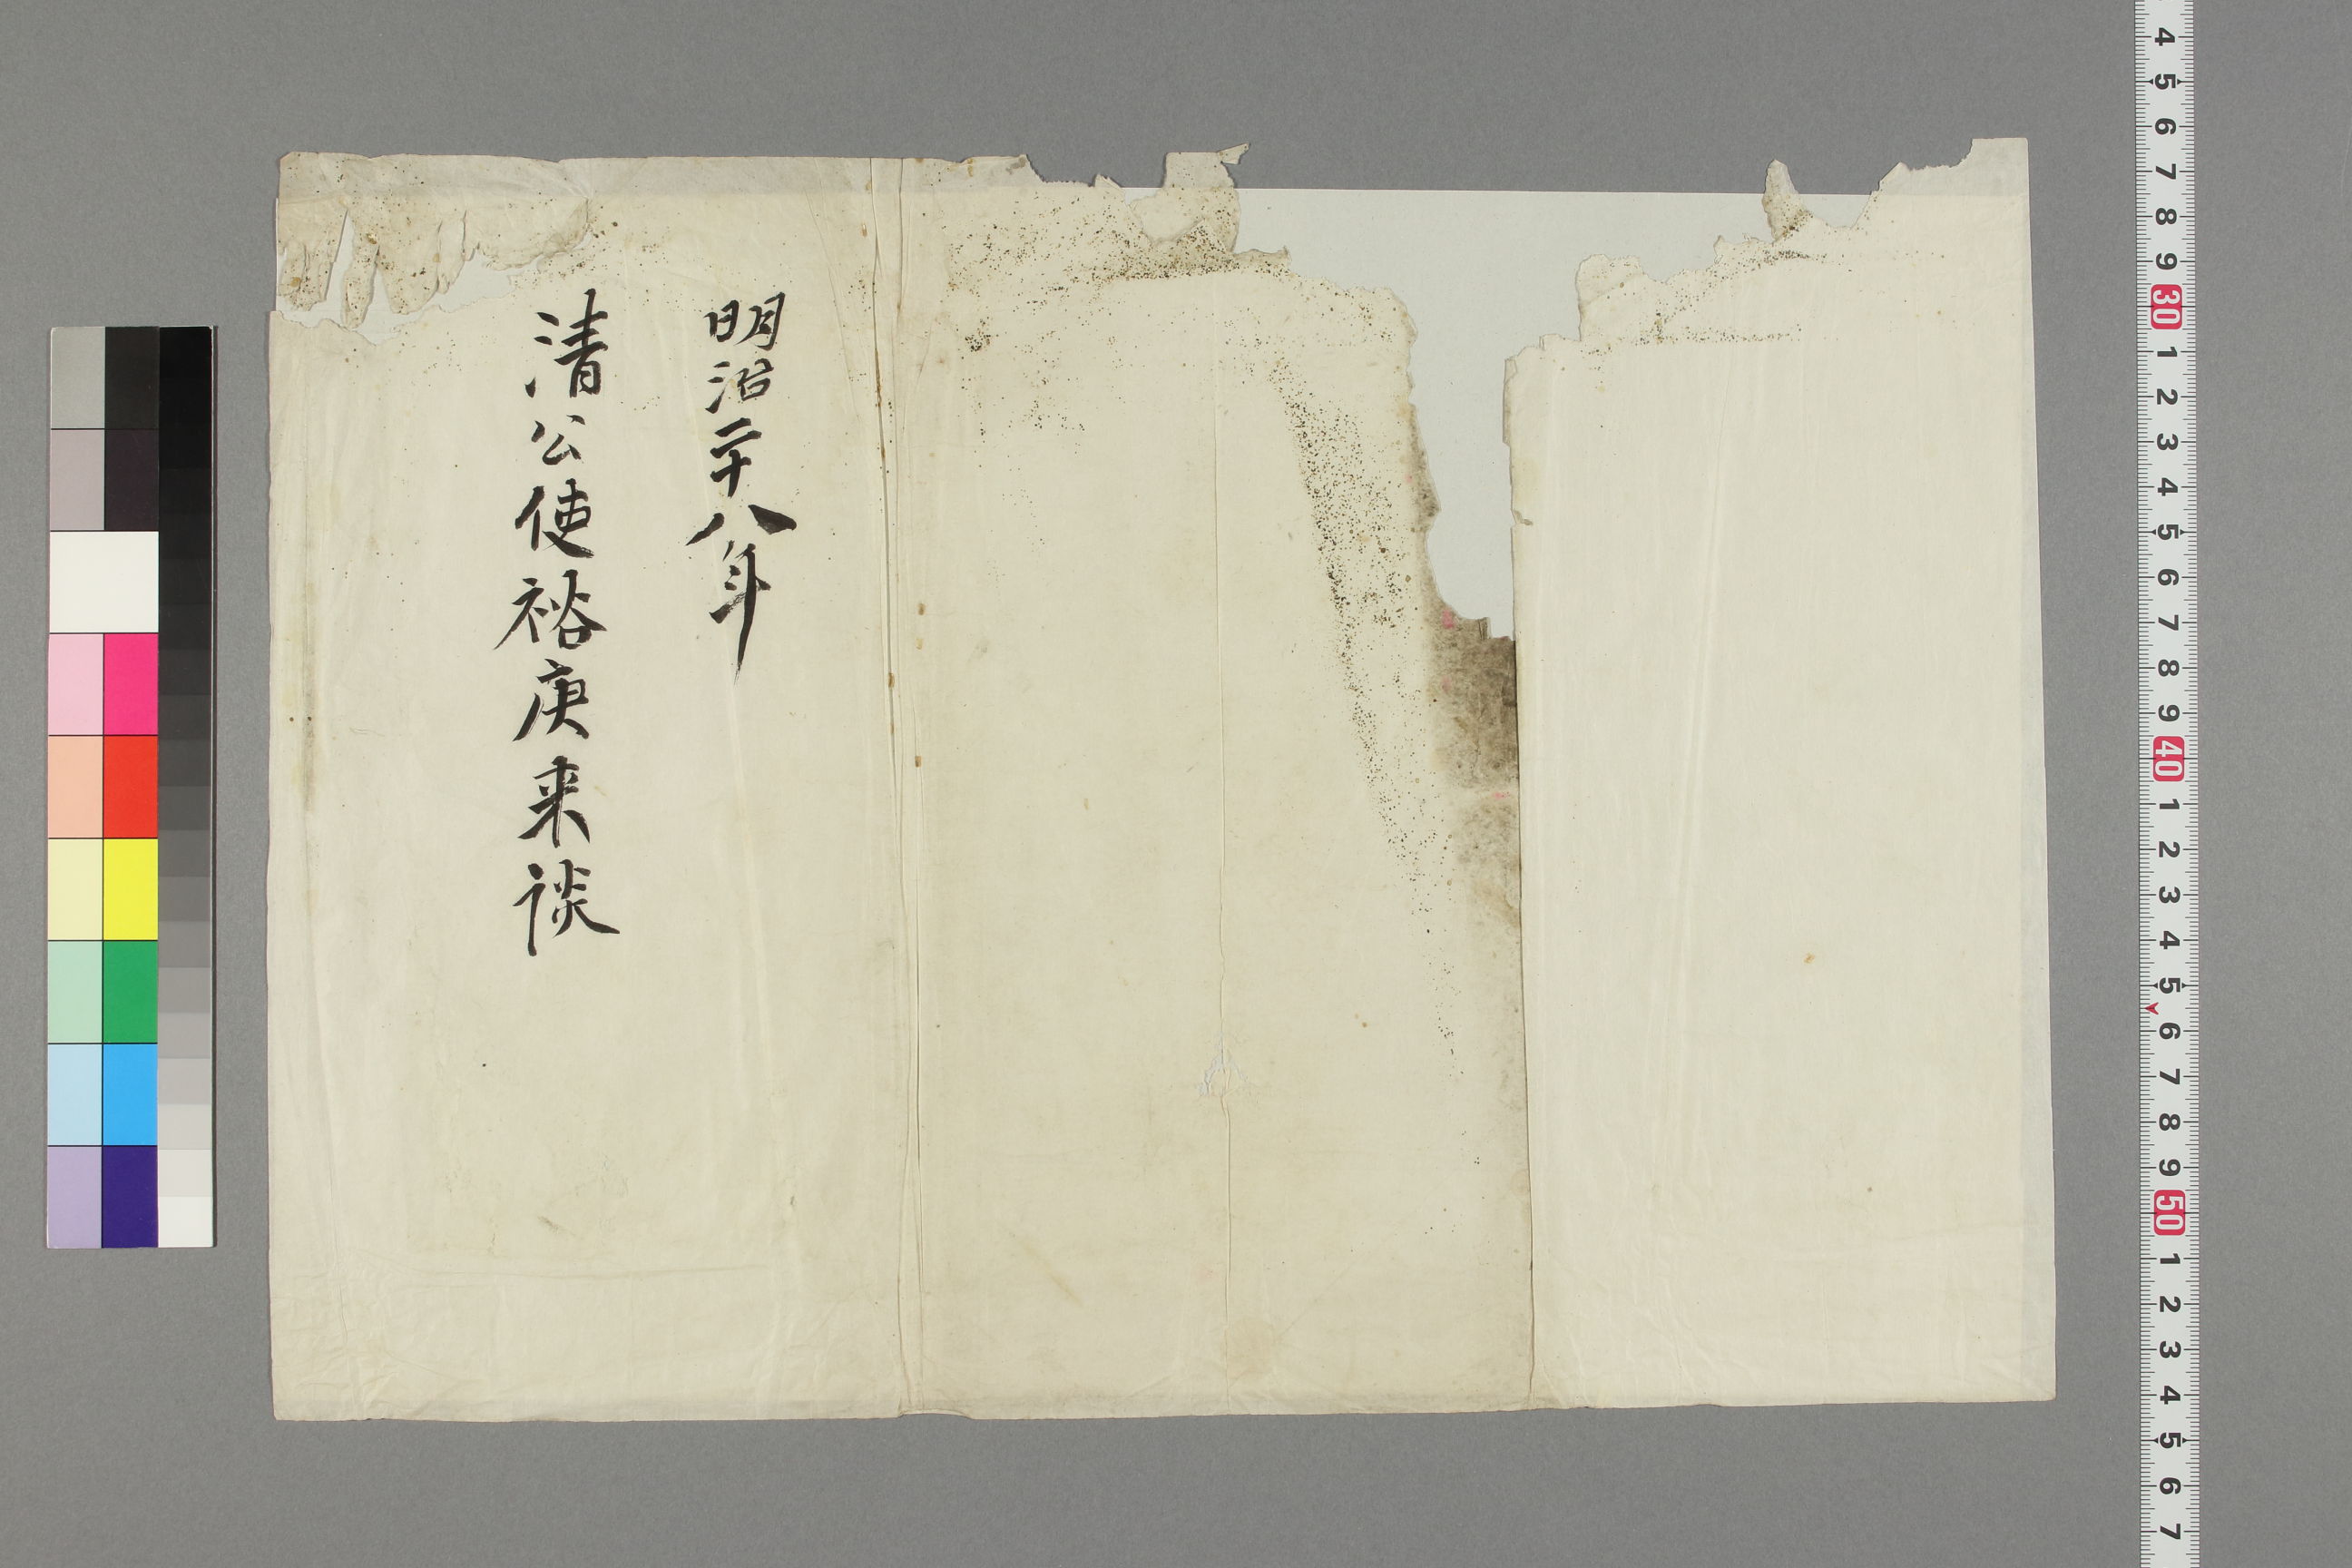 明治二十八年
清公使裕庚来談
4 5 6 7 8 9 30 1 2 3 4 5 6 7 8 9 40 1 2 3 4 5 6 7 8 9 50 1 2 3 4 5 6 7